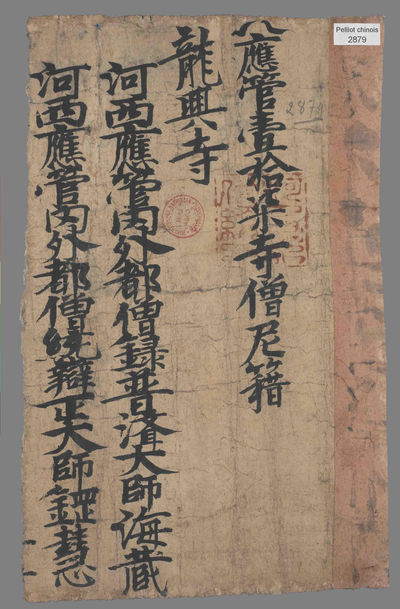 應管壹拾柒寺僧尼籍
龍興寺
河西應管內外都僧錄普濟大師海藏
河西應管內外都僧統辯正大師鋼惠
Pelliot chinois
2879
2879